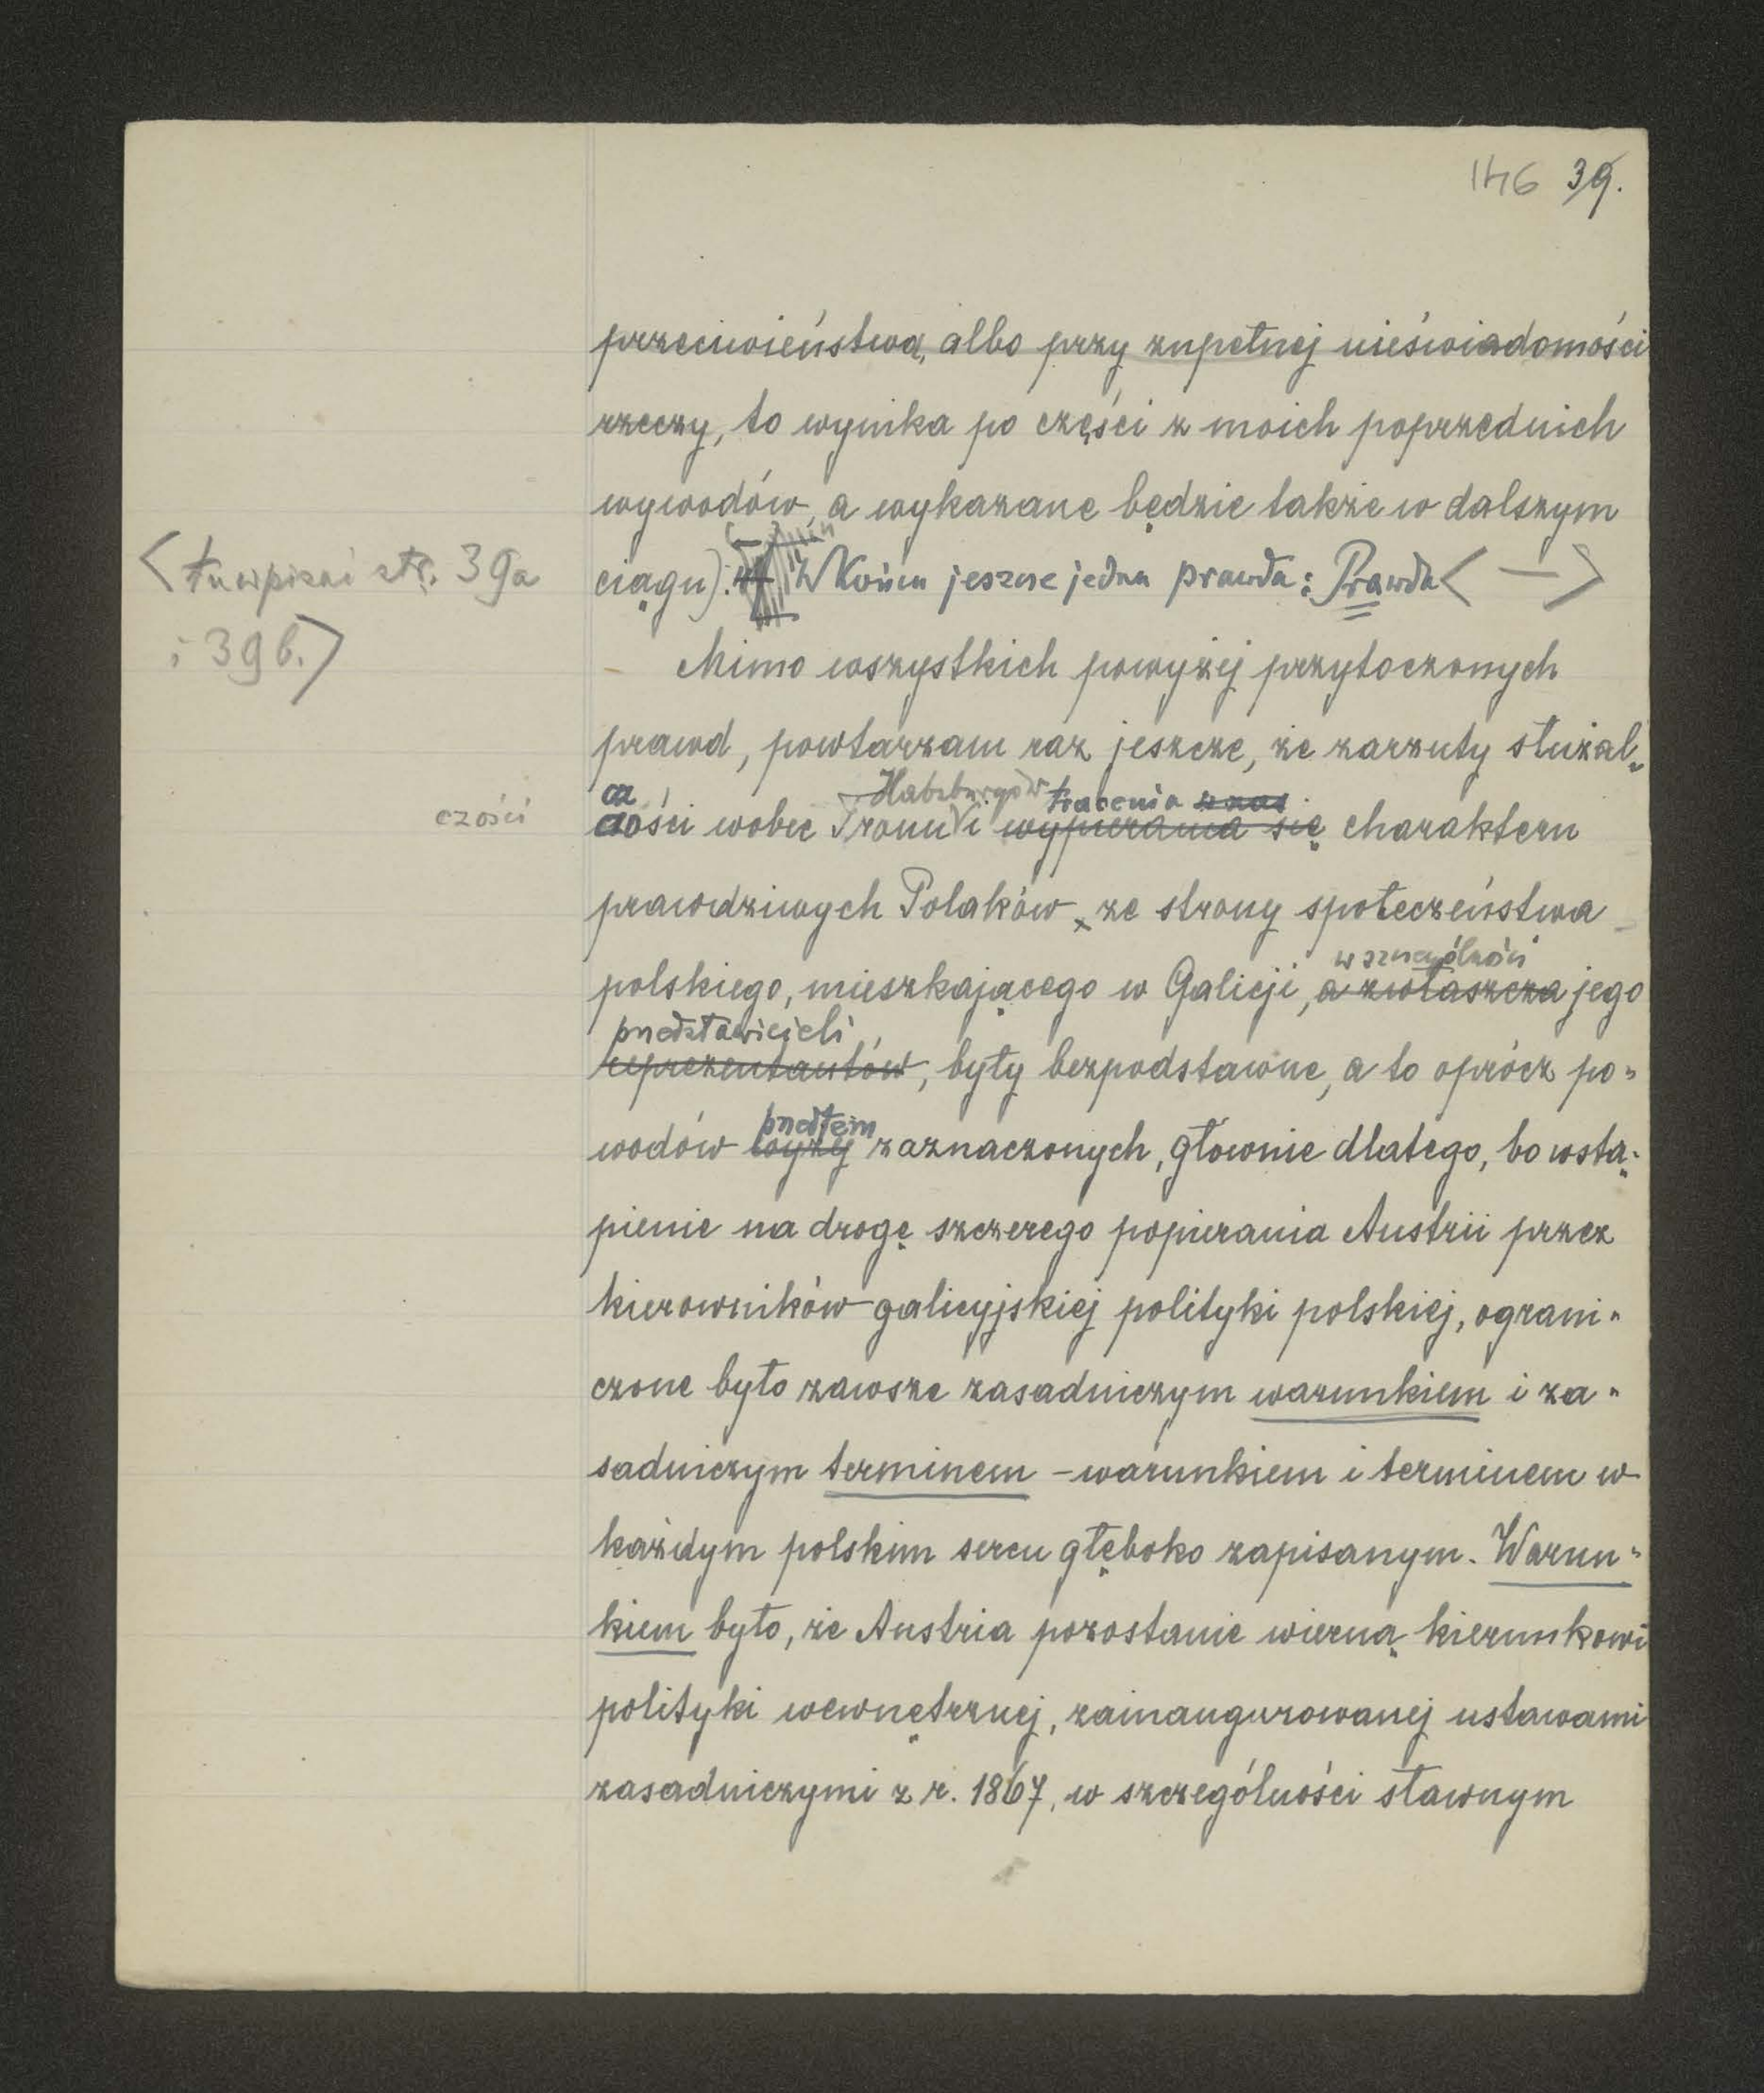 146 39.
przeciwieństwa, albo przy zupełnej nieświadomości
rzeczy, to wynika po części z moich poprzednich
wywodów, a wykazane będzie także w dalszym
<tu wpisać str. 39a
i 39b.>
ciągu). W końcu jeszcze jedna prawda: Prawda < — >
Mimo wszystkich powyżej przytoczonych
prawd, powtarzam raz jeszcze, że zarzuty służal-
cz
Habsburgów tracenia
czości
ości wobec Tronu i wypierania się charakteru
prawdziwych Polaków, ze strony społeczeństwa
w szczególności
polskiego, mieszkającego w Galicji, a zwłaszcza jego
przedstawicieli
reprezentantów, były bezpodstawne, a to oprócz po-
przedtem
wodów wyżej zaznaczonych, głownie dlatego, bo wstą-
pienie na drogę szczerego popierania Austrii przez
kierowników galicyjskiej polityki polskiej, ograni-
czone było zawsze zasadniczym warunkiem i za-
sadniczym terminem - warunkiem i terminem w
każdym polskim sercu głęboko zapisanym. Warun-
kiem było, że Austria pozostanie wierną kierunkowi
polityki wewnętrznej, zainaugurowanej ustawami
zasadniczymi z r. 1867, w szczególności sławnym